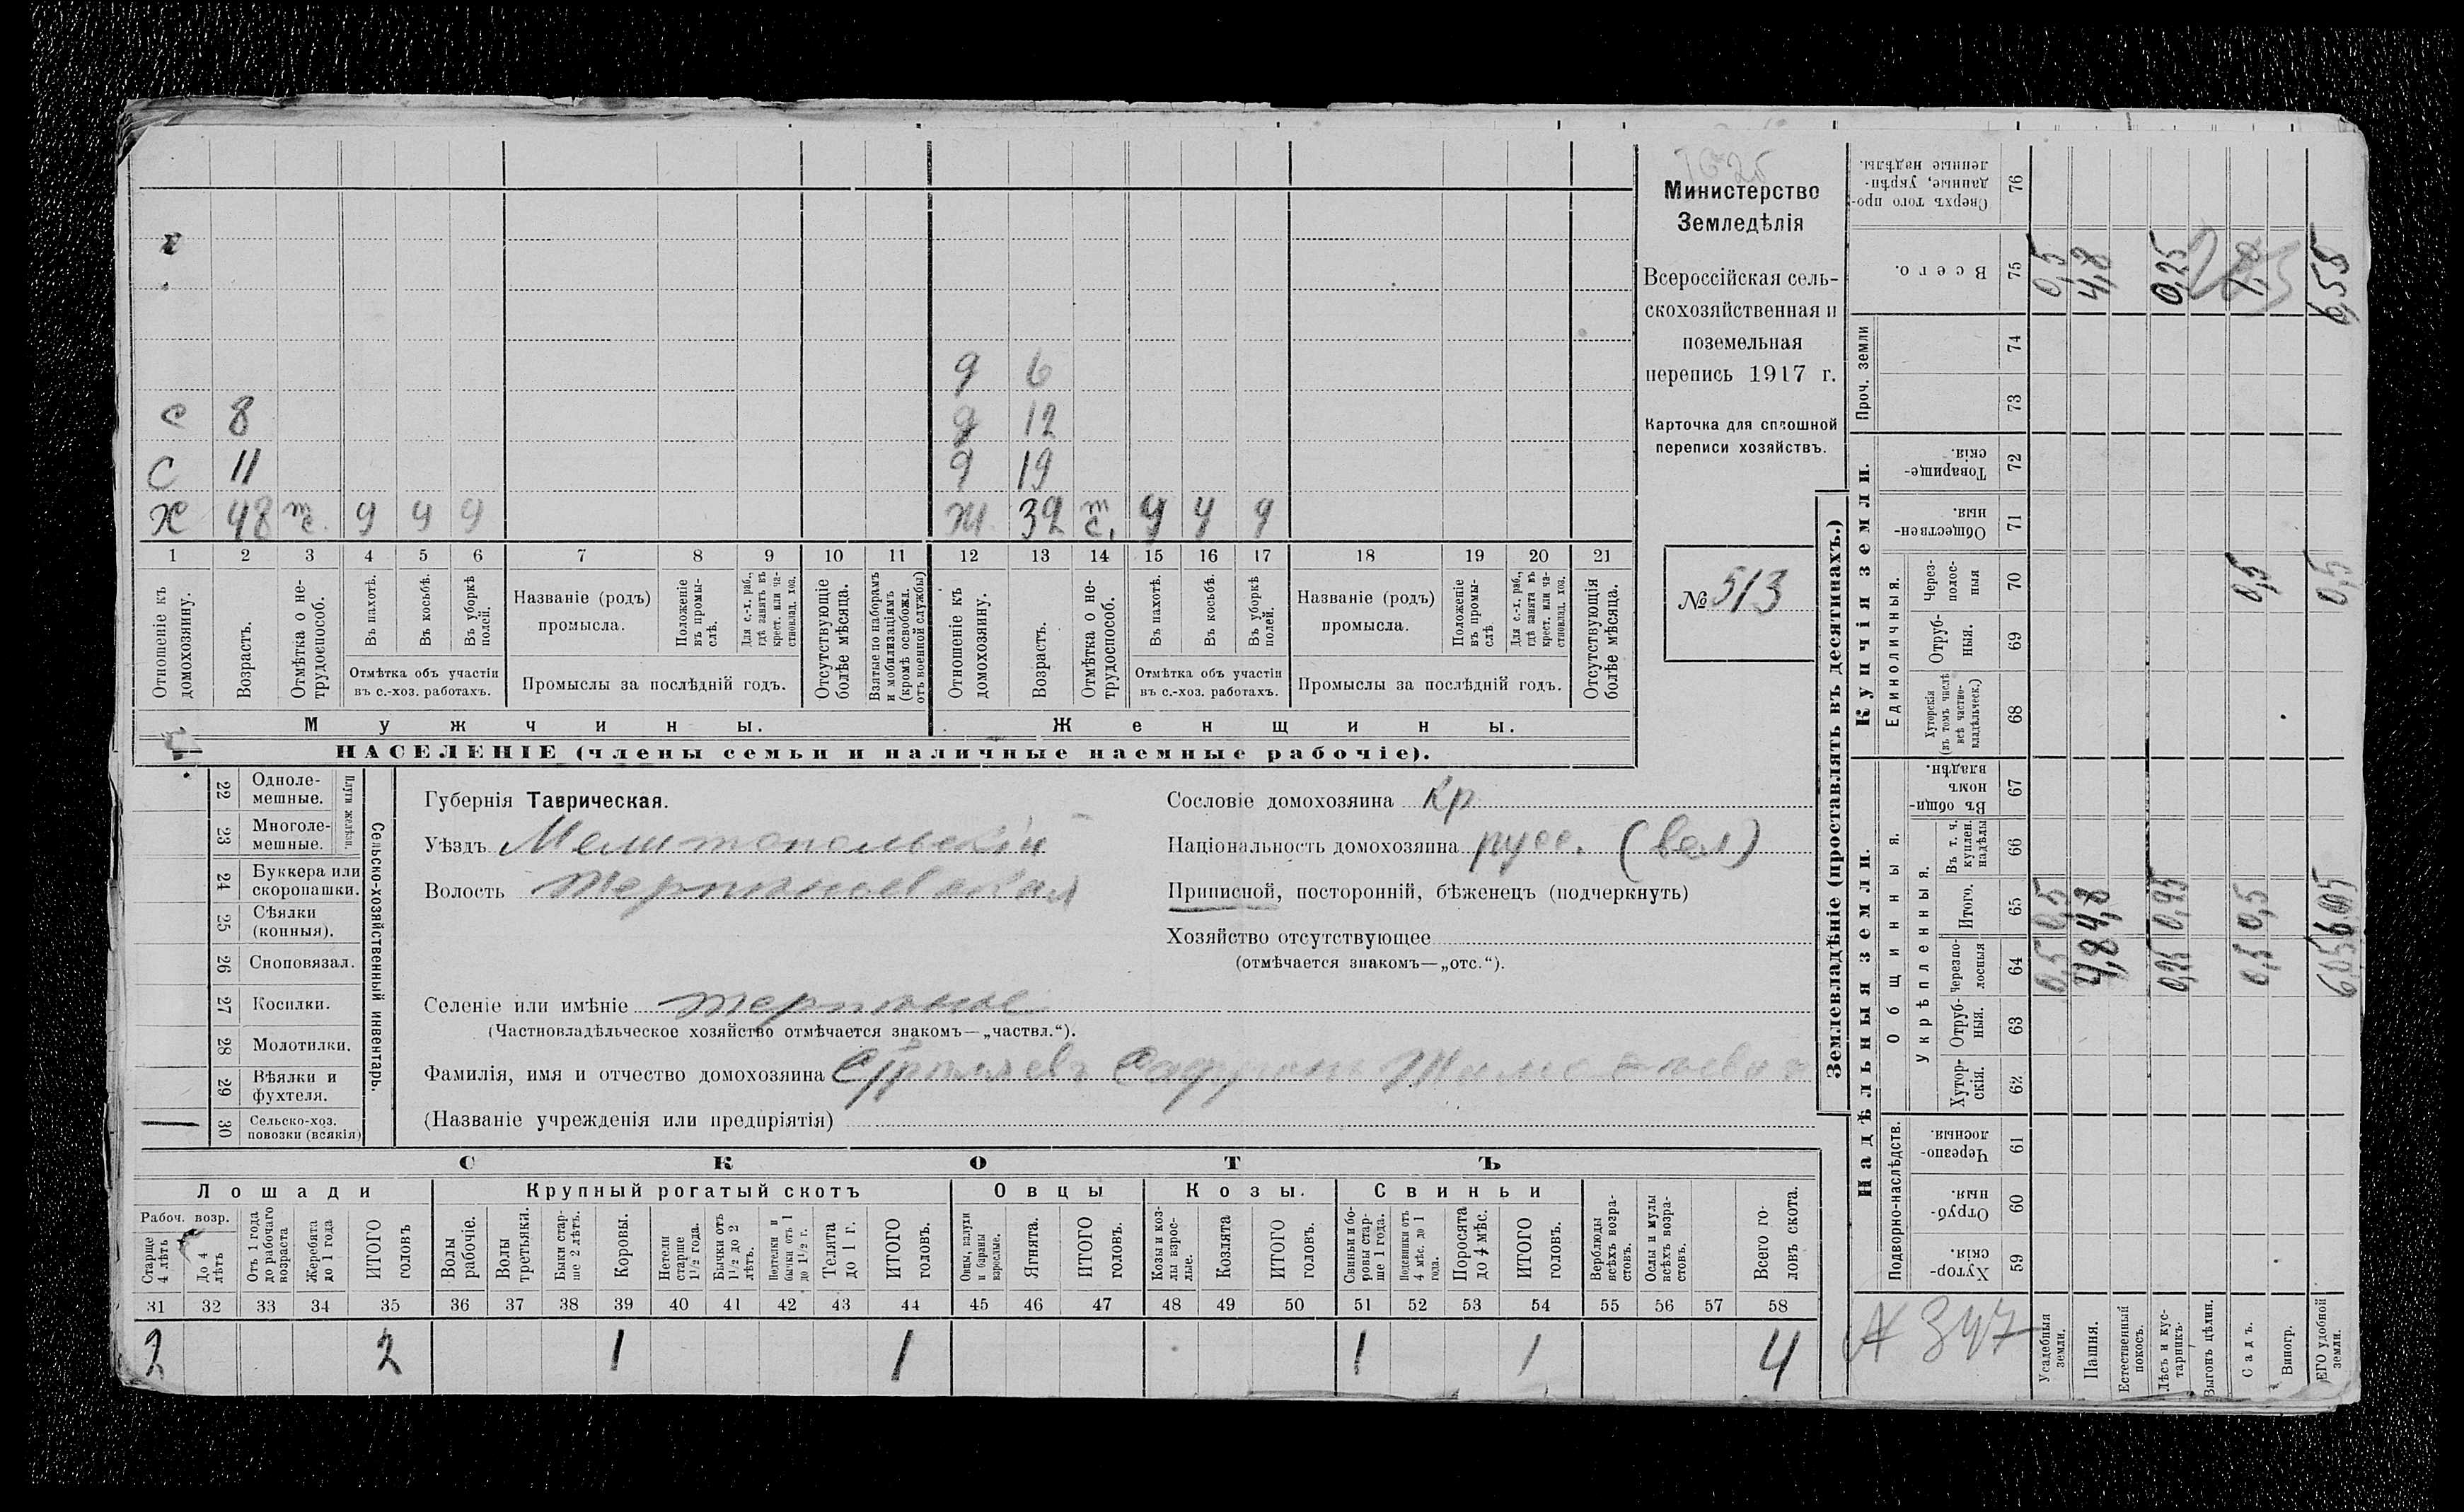 Министерство
Земледѣлія
Всероссійская сель-
скохозяйственная и
поземельная
перепись 1917 г.
Карточка для сплошной
переписи хозяйствъ.
№ 513
д 6
с 8 д 12
с 11 д 19
х 48 ч ч ч ж 39 ч ч ч
1 2 3 4 5 6 7 8 9 10 11 12 13 14 15 16 17 18 19 20 21
Отношеніе къ домохозяину.
Возрастъ.
Отмѣтка о не-трудоспособ.
Въ пахотѣ.
Въ косьбѣ.
Въ уборкѣ полей.
Отмѣтка объ участіи въ с.-хоз. работахъ.
Названіе (родъ) промысла.
Положеніе въ промы-слѣ.
Для с.-х. раб., гдѣ занятъ въ крест. или ча-стновлад. хоз.
Промыслы за послѣдній годъ.
Отсутствующіе болѣе мѣсяца.
Взятые по наборамъ и мобилизаціямъ (кромѣ освобожд. отъ военной службы)
Отношеніе къ домохозяину.
Возрастъ.
Отмѣтка о не-трудоспособ.
Въ пахотѣ.
Въ косьбѣ.
Въ уборкѣ полей.
Отмѣтка объ участіи въ с.-хоз. работахъ.
Названіе (родъ) промысла.
Положеніе въ промы-слѣ
Для с.-х. раб., гдѣ занята въ крест. или ча-стновлад. хоз.
Промыслы за послѣдній годъ.
Отсутствующія болѣе мѣсяца.
Мужчины. Женщины.
НАСЕЛЕНІЕ (члены семьи и наличные наемные рабочіе).
22 Одноле-мешные.
23 Многоле-мешные.
Плуги желѣзн.
24 Буккера или скоропашки.
25 Сѣялки (конныя).
26 Сноповязал.
27 Косилки.
28 Молотилки.
29 Вѣялки и фухтеля.
30 Сельско-хоз. повозки (всякія)
Сельско-хозяйственный инвентарь.
Губернія Таврическая.
Уѣздъ Мелитопольскій
Волость Терпѣньевская
Селеніе или имѣніе Терпѣнье
(Частновладѣльческое хозяйство отмѣчается знакомъ—„частвл.“).
Фамилія, имя и отчество домохозяина
(Названіе учрежденія или предпріятія)
Сословіе домохозяина Кр
Національность домохозяина русс. (вел)
Приписной, посторонній, бѣженецъ (подчеркнуть)
Хозяйство отсутствующее
(отмѣчается знакомъ—„отс.“).
СКОТЪ
Лошади Крупный рогатый скотъ Овцы Козы. Свиньи
Рабоч. возр.
Старше 4 лѣтъ
До 4 лѣтъ
Отъ 1 года до рабочаго возраста
Жеребята до 1 года
ИТОГО головъ
Волы рабочіе.
Волы третьяки.
Быки стар-ше 2 лѣтъ.
Коровы.
Нетели старше 1½ года.
Бычки отъ 1½ до 2 лѣтъ.
Подтелки и бычки отъ 1 до 1½ г.
Телята до 1 г.
ИТОГО головъ.
Овцы, валухи и бараны взрослые.
Ягнята.
ИТОГО головъ.
Козы и коз-лы взрос-лые.
Козлята
ИТОГО головъ.
Свиньи и бо-ровы стар-ше 1 года.
Подсвинки отъ 4 мѣс. до 1 года.
Поросята до 4 мѣс.
ИТОГО головъ.
Верблюды всѣхъ возра-стовъ.
Ослы и мулы всѣхъ возра-стовъ.
Всего го-ловъ скота.
31 32 33 34 35 36 37 38 39 40 41 42 43 44 45 46 47 48 49 50 51 52 53 54 55 56 57 58
2 2 1 1 1 1 4
Землевладѣніе (проставлять въ десятинахъ.)
Надѣльныя земли. Купчія земли.
Подворно-наслѣдств.
Общинныя.
Укрѣпленныя.
Единоличныя.
Проч. земли
Хутор-скія. 59
Отруб-ныя. 60
Черезпо-лосныя. 61
Хутор-скія. 62
Отруб-ныя. 63
Черезпо-лосныя 64
Итого. 65
Въ т. ч. куплен. надѣлы 66
Въ общи-номъ владѣн. 67
Хуторскія (въ томъ числѣ всѣ частно-владѣльческ.) 68
Отруб-ныя. 69
Через-полос-ныя 70
Обществен-ныя. 71
Товарище-скія. 72
73
74
Всего. 75
Сверхъ того про-данные, укрѣп-ленные надѣлы. 76
Усадебныя земли. 0,5 0,5 0,5
Пашня. 4,8 4,8 4,8
Естественный покосъ.
Лѣсъ и кус-тарникъ. 0,25 0,25 0,25
Выгонъ цѣлин.
Садъ. 0,5 0,5 0,5
Виногр.
ЕГО удобной земли. 6,05 6,05 0,5 6,55
347